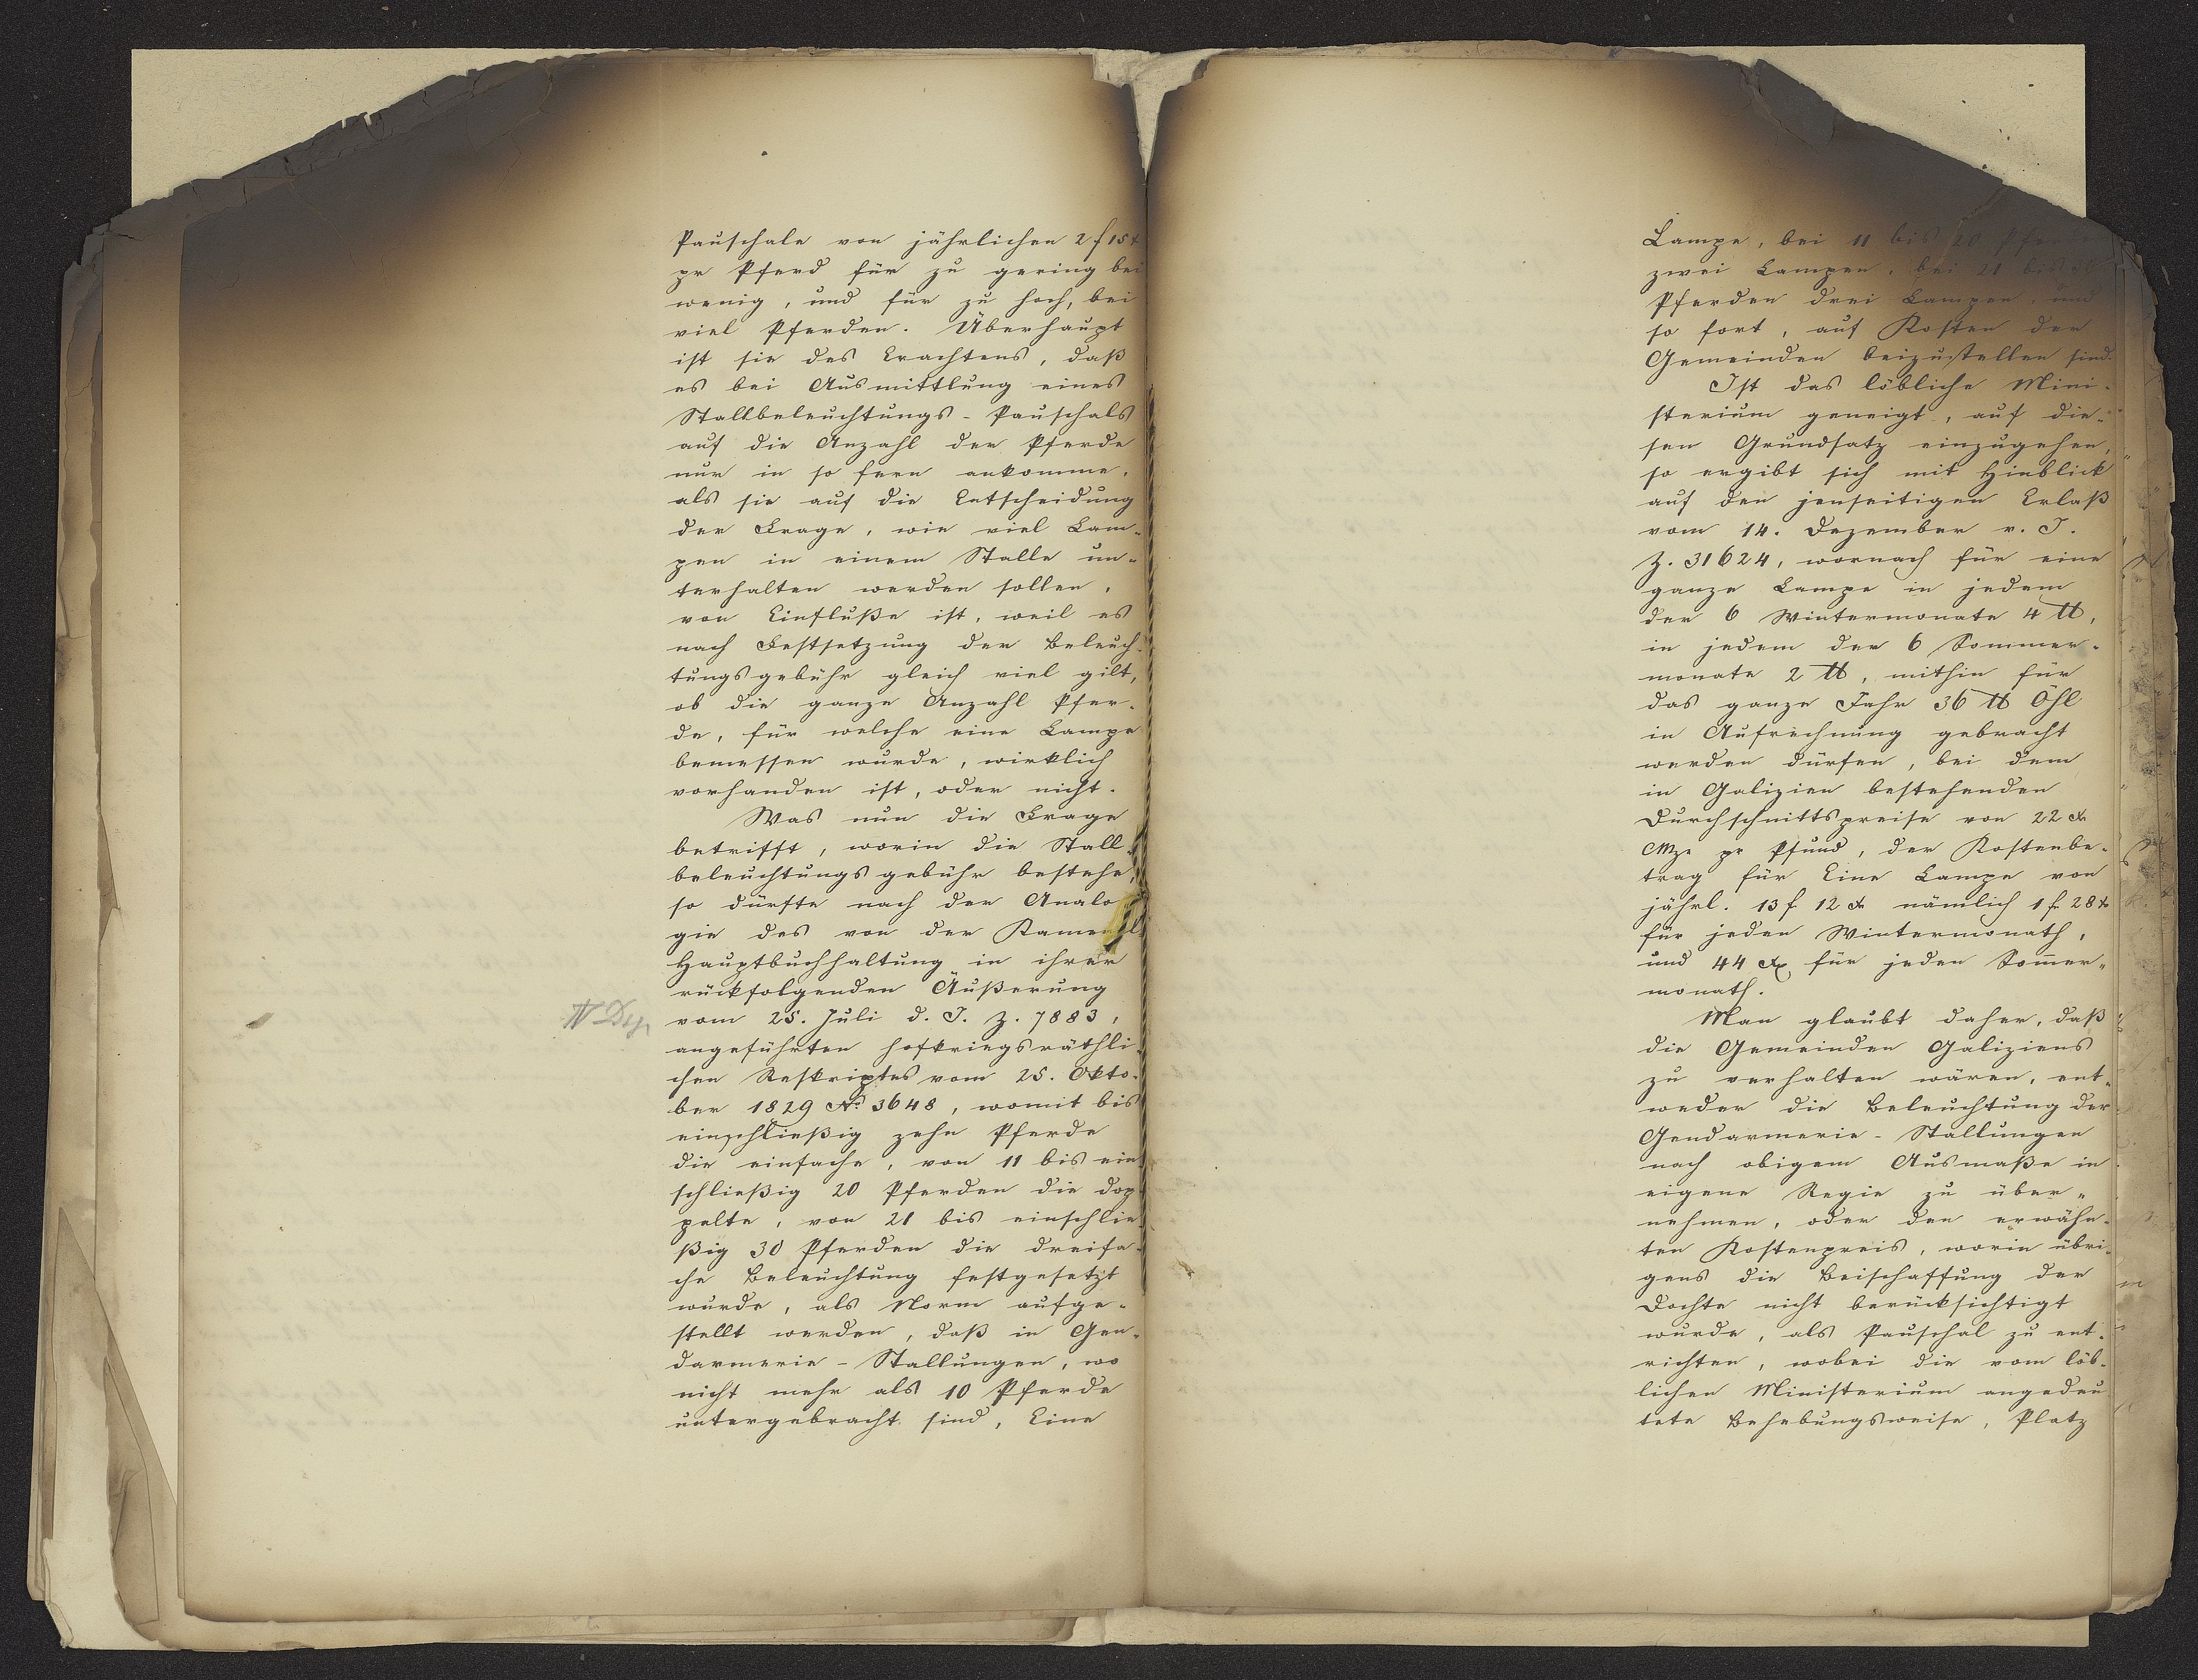 Pauschale von jährlichen 2 f 15 x
pr Pferd für zu gering bei
wenig, und für zu hoch, bei
viel Pferden. Überhaupt
ist sie des Erachtens, daß
es bei Ausmittlung eines
Stallbeleuchtungs-Pauschals
auf die Anzahl der Pferde
nur in so fern ankomme,
als sie auf die Entscheidung
der Frage, wie viel Lam-
pen in einem Stalle un-
terhalten werden sollen,
von Einfluße ist, weil es
nach Festsetzung der Beleuch-
tungsgebühr gleich viel gilt,
ob die ganze Anzahl Pfer-
de, für welche eine Lampe
bemessen wurde, wirklich
vorhanden ist, oder nicht.
Was nun die Frage
betrifft, worin die Stall-
beleuchtungsgebühr bestehe,
so dürfte nach der Analo
gie des von der Kameral
Hauptbuchhaltung in ihrer
rückfolgenden Äußerung
vom 25. Juli d. J. Z. 7883,
angeführten hofkriegsräthli-
chen Reskriptes vom 25. Okto-
ber 1829 No 3648, womit bis
einschließig zehn Pferde
die einfache, von 11 bis ein
schließig 20 Pferden die dop
pelte, von 21 bis einschlie
ßig 30 Pferden die dreifa-
che Beleuchtung festgesetzt
wurde, als Norm aufge-
stellt werden, daß in Gen-
darmerie-Stallungen, wo
nicht mehr als 10 Pferde
untergebracht sind, Eine
Lampe, bei 11 bis 20 Pferden
zwei Lampen, bei 21 bis
Pferden drei Lampen, und
so fort, auf Kosten der
Gemeinden beizustellen sind.
Ist das löbliche Mini-
sterium geneigt, auf die-
sen Grundsatz einzugehen,
so ergibt sich mit Hinblick
auf den jenseitigen Erlaß
vom 14. Dezember v. J.
Z. 31624, wornach für eine
ganze Lampe in jedem
der 6 Wintermonate 4 ℔,
in jedem der 6 Sommer-
monate 2 ℔, mithin für
das ganze Jahr 36 ℔ Öhl
in Aufrechnung gebracht
werden dürfen, bei dem
in Galizien bestehenden
Durchschnittspreise von 22 x
CMze pr Pfund, der Kostenbe-
trag für Eine Lampe von
jährl. 13 f 12 x nämlich 1 f 28 x
für jeden Wintermonath,
und 44 x für jeden Som̅er-
monath.
Man glaubt daher, daß
die Gemeinden Galiziens
zu verhalten wären, ent-
weder die Beleuchtung der
Gendarmerie-Stallungen
nach obigem Ausmaße in
eigene Regie zu über-
nehmen, oder den erwähn-
ten Kostenpreis, worin übri-
gens die Beischaffung der
Dochte nicht berücksichtigt
wurde, als Pauschal zu ent-
richten, wobei die vom löb-
lichen Ministerium angedeu
tete Behebungsweise, Platz